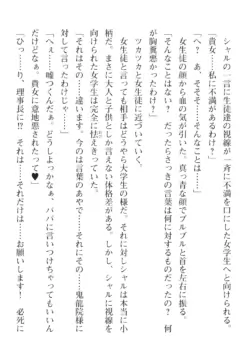 シャルの一言に生徒達の視線が一斉に不満を口にした女学生へと向けられる。
「貴女……私に不満があるわけ？」
「へ？　あ、そ……そんなことは……」
女生徒の顔から血の気が引いた。真っ青な顔でブルブルと首を左右に振る。
「そんなことはない？　だったらさっきの言葉は何に対するものだったの？　何
が胸糞悪かったわけ？」
ツカツカと女生徒に近づいていく。
女生徒と言っても相手はどうやら大学生の様だ。それに対しシャルは本当に小
柄だ。まさに大人と子供としか言えない体格差がある。しかし、シャルに視線を
向けられた女学生は完全に怯えきっていた。
「それは……その……違います。今のは言葉のあやで……それにその……鬼龍院様に
対して言ったわけじゃ……」
「へぇ……嘘つくんだぁ。どうしよっかなぁ、パパに言いつけちゃってもいいん
だけどなぁ。貴女に意地悪されたって♥」
「ひっ……り、理事長に⁉　それは……それだけは……お願いします！　必死に